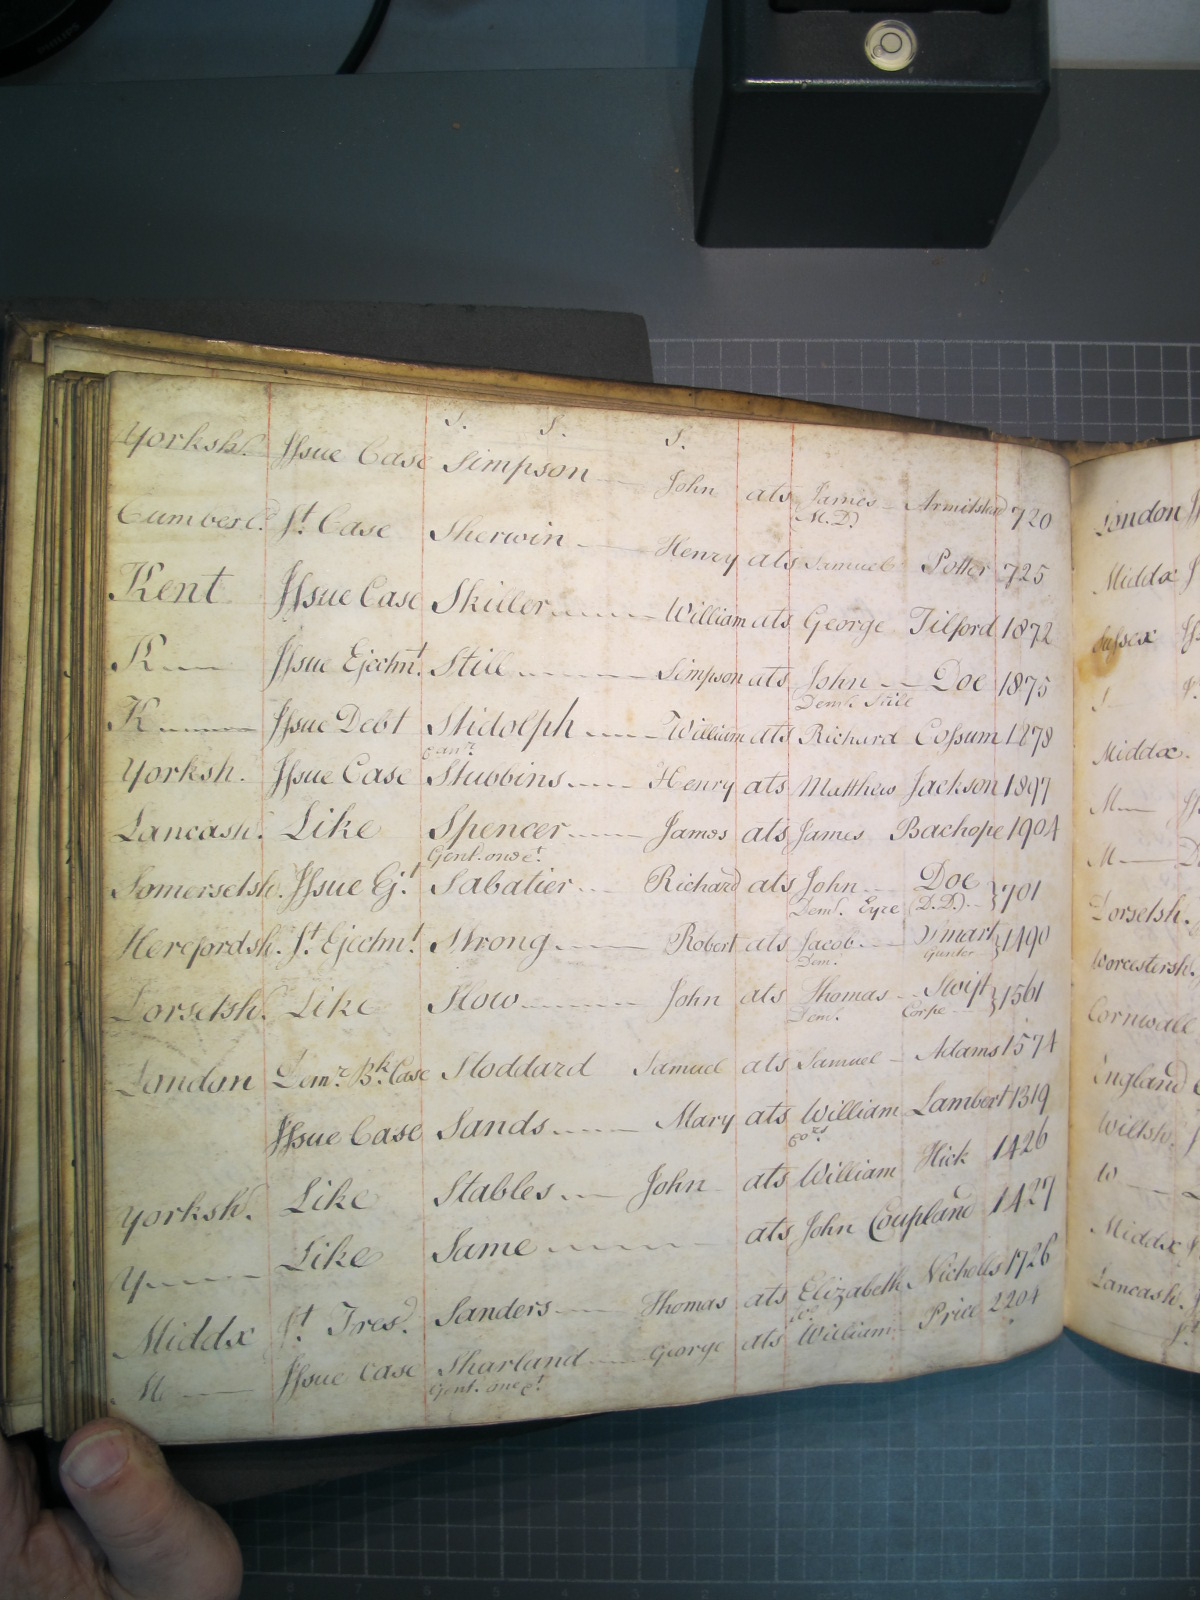 S. S. S.
Yorksh. Issue Case Simpson John ats James Armitstead 720
M.D.
Cumberl.d Jt. Case Sherwin Henry ats Samuel Potter 725
Kent Issue Case Skiller William ats George Tilford 1872
K Issue Ejectmt. Still Simpson ats John Doe 1875
Dem. Still
K Issue Debt Stidolph William ats Richard Cossum 1878
Yorksh. Issue Case Stubbins Henry ats Matthew Jackson 1897
Lancash. Like Spencer James ats James Bachope 1904
Gent. one &c.
Somersetsh. Issue Ejt. Sabatier Richard ats John Doe } 701
Dem. Eyre (D.D.)
Herefordsh. Jt. Ejectmt. Strong Robert ats Jacob Smart } 1490
Dem. Gunter
Dorsetsh. Like Slow John ats Thomas Swift } 1561
Dem. Corpe
London Demr. Bk. Case Stoddard Samuel ats Samuel Adams 1574
Issue Case Sands Mary ats William Lambert 1319
Yorksh. Like Stables John ats William Hick 1426
Y Like Same ats John Coupland 1427
Middx Jt. Tres. Sanders Thomas ats Elizabeth Nicholls 1726
M Issue Case Sharland George ats William Price 2204
Gent. one &c.
London
Middx
Sussex
S
Middx.
M
M
Dorsetsh.
Worcestersh.
Cornwall
England
Wiltsh.
W
Middx
Lancash.